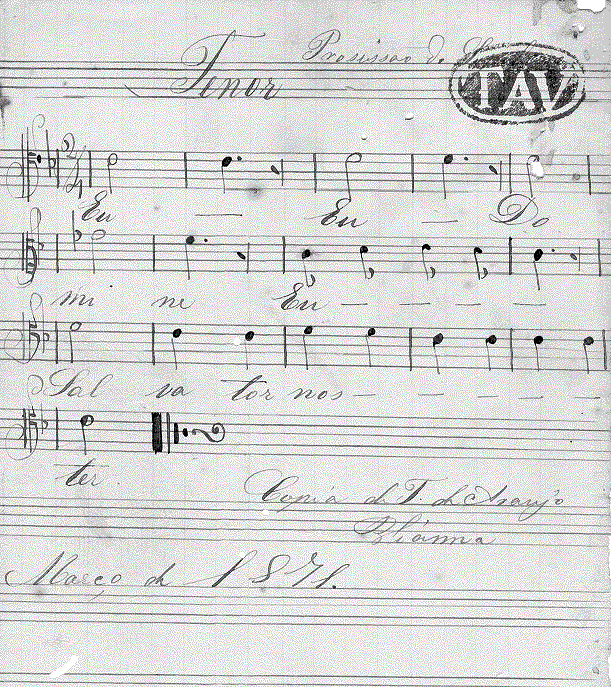 Prosissão do
Tenor
TAV
2/4
Eu — Eu — Do
mi ne Eu — — — —
Sal va tor nos — — — — —
ter.
Copia de T. de Araujo
Vianna
Março de 1871.